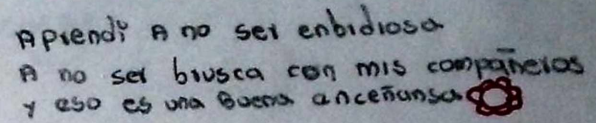 Aprendi A no ser enbidiosa
A no ser brusca con mis compañeros
y eso es una Buena anceñansa